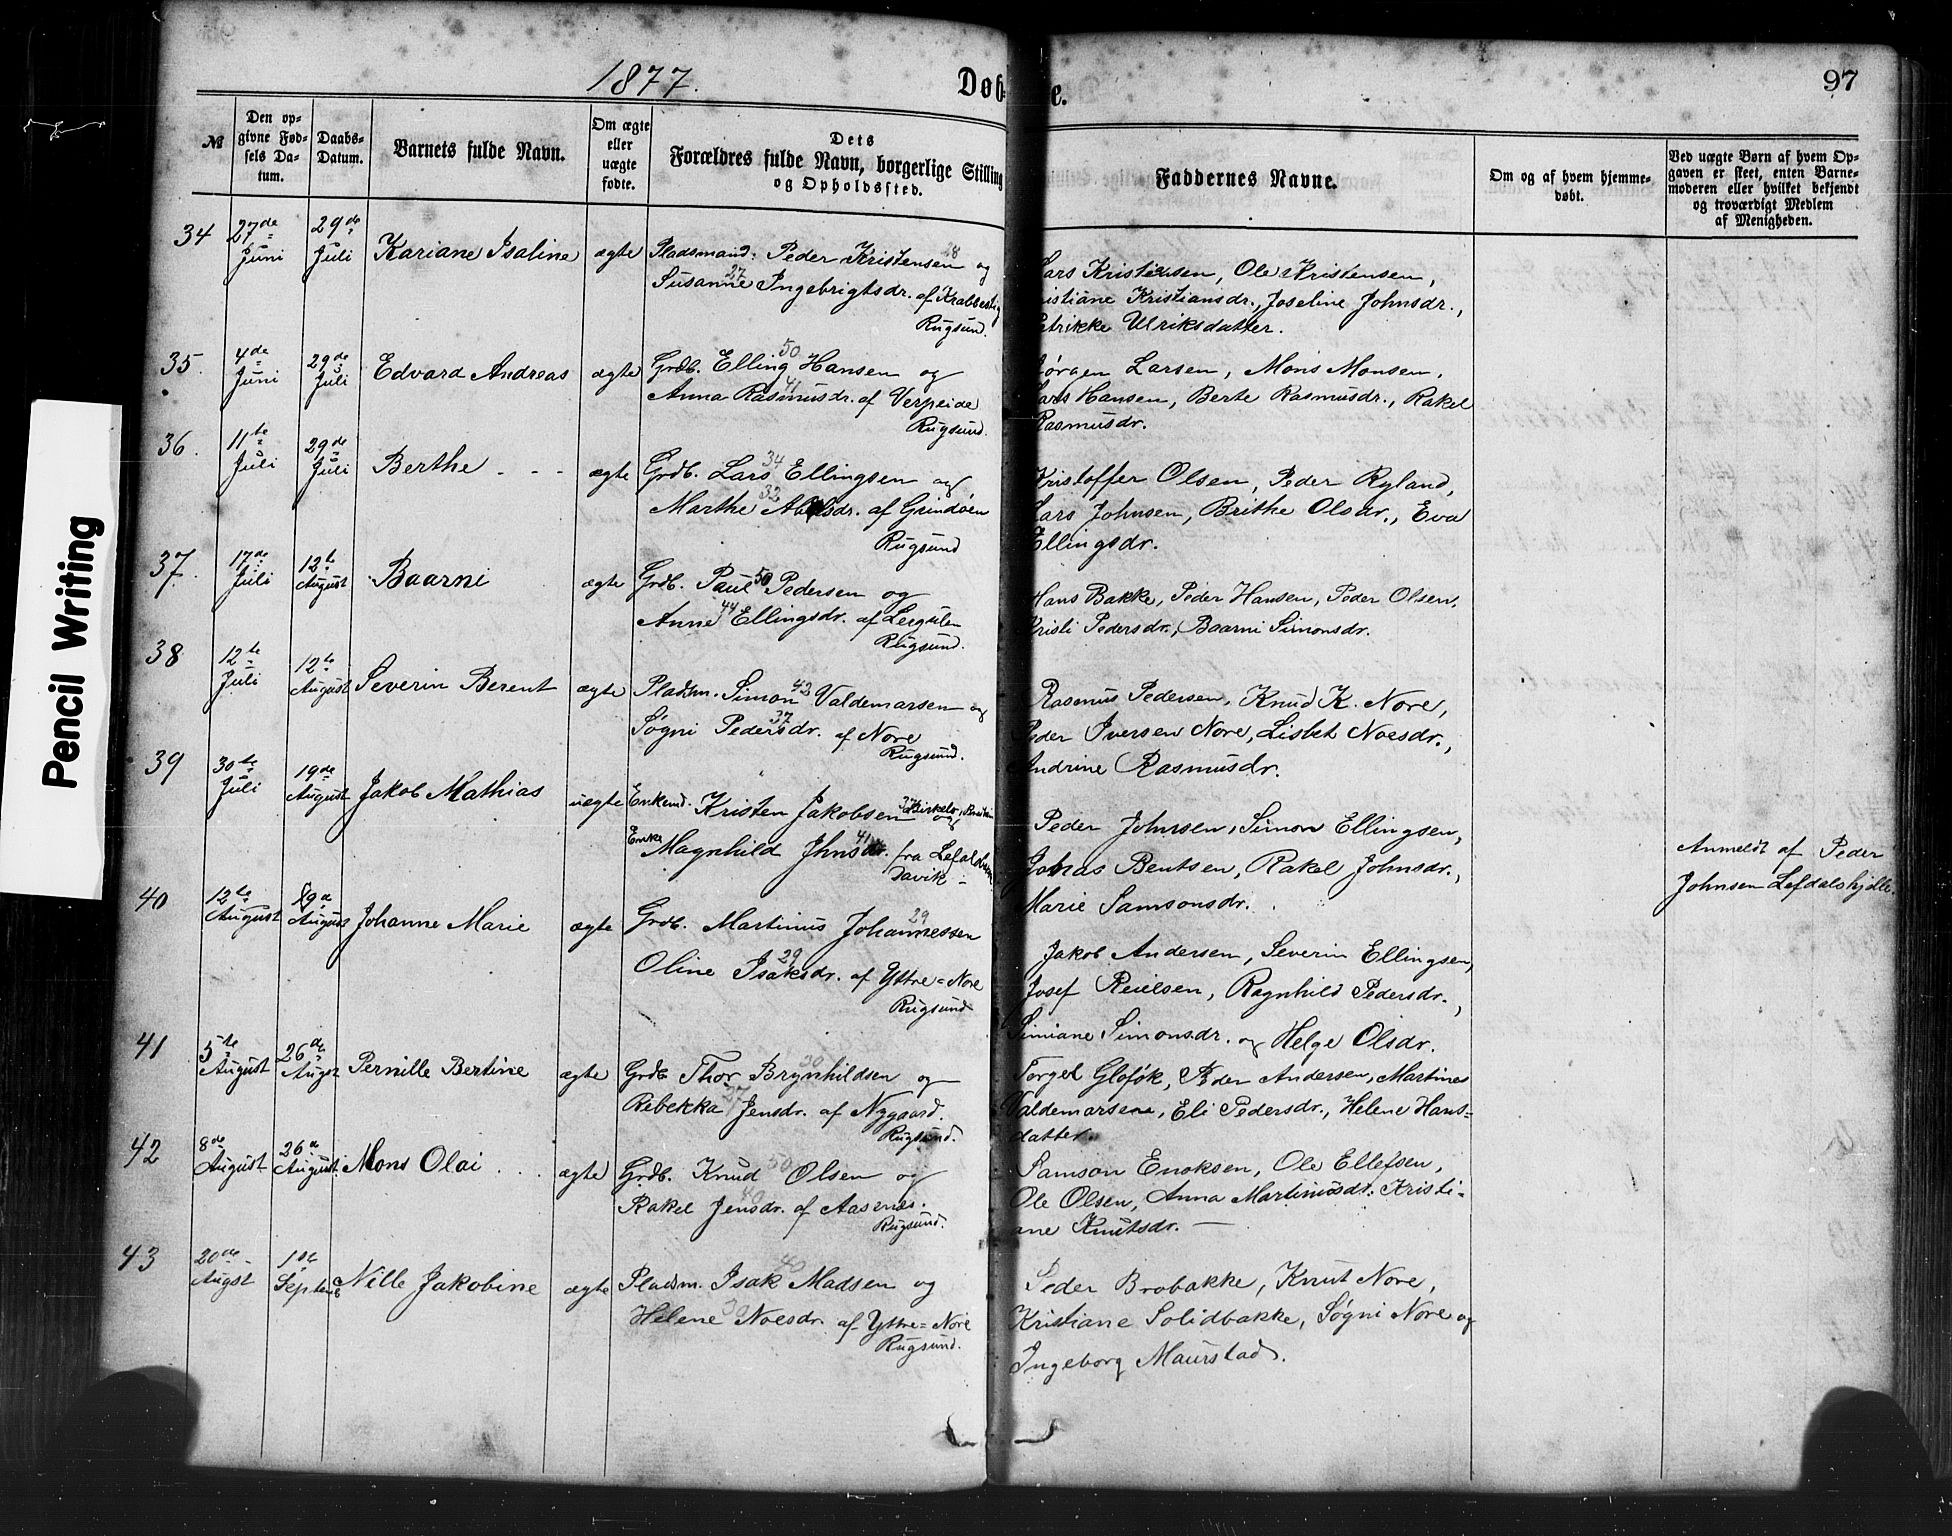 1877.
Døb-
e.
97
Pencil Writing
№
Den op-
givne Fød-
sels Da-
tum.
Daabs-
Datum.
Barnets fulde Navn.
Om ægte
eller
uægte
fødte.
Dets
Forældres fulde Navn, borgerlige Stilling
og Opholdssted.
Faddernes Navne.
Om og af hvem hjemme-
døbt.
Ved uægte Børn af hvem Op-
gaven er skeet, enten Barne-
moderen eller hvilket bekjendt
og troværdigt Medlem
af Menigheden.
34 27de Juni 29de Juli Kariane Isaline ægte Pladsmand: Peder Kristensen 28 og
Susanne 27 Ingebrigtsdr. af Krabbestig
Rugsund.
Lars Kristensen, Ole Kristensen,
istiane Kristiansdr., Joseline Johnsdr.,
Petrikke Ulriksdatter.
35. 4de Juni 29de Juli Edvard Andreas ægte Grdb. Elling 50 Hansen og
Anna Rasmusdr. 41 af Verpeide
Rugsund.
Jørgen Larsen, Mons Monsen,
Lars Hansen, Berte Rasmusdr., Rakel
Rasmusdr.
36. 11te Juli 29de Juli Berthe - - - ægte Grdb. Lars 34 Ellingsen og
Marthe 32 af Grindøen
Rugsund
Kristoffer Olsen, Peder Ryland,
Lars Johnsen, Brithe Olsdr., Eva
Ellingsdr.
37. 17de Juli 12te August Baarni ægte Grdb. Paul 50 Pedersen og
Anne 44 Ellingsdr. af Leegulen
Rugsund.
Hans Bakke, Peder Hansen, Peder Olsen,
Kristi Pedersdr., Baarni Simonsdr.
38 12te Juli 12te August Severin Berent ægte Pladsm. Simon 42 Valdemarsen og
Søgni Pedersdr. 37 af Nore
Rugsund.
Rasmus Pedersen, Knud K. Nore,
Peder Iversen Nore, Lisbet Noesdr.,
Andrine Rasmusdr.
39 30te Juli 19de August Jakob Mathias uægte Enkemd. Kristen Jakobsen og
Enke Magnhild Jhnsdr. 41 fra
Davik -
Peder Johnsen, Simon Ellingsen,
Johas Bentsen, Rakel Johnsdr.,
Marie Samsonsdr.
Anmeldt af Peder
Johnsen Lefdalshjelle.
40 12te August 19de August Johanne Marie ægte Grdb. Martinus Johannessen 29
Oline Isaksdr. 29 af Yttre=Nore
Rugsund
Jakob Andersen, Severin Ellingsen,
Josef Reielsen, Ragnhild Pedersdr.,
Simiane Simonsdr. og Helge Olsdr.
41 5te August 26de Augst Pernille Bertine ægte Grdb Thor Brynhildsen 30 og
Rebekka 37 Jensdr. af Nygaard.
Rugsund.
Torgel Gloføk, Peder Andersen, Martines
Valdemarsen, Eli Pedersdr., Helene Hans=
datter.
42 8de August 26de August Mons Olai . . . ægte Grdb. Knud 50 Olsen og
Rakel Jensdr. 40 af Aasenes.
Rugsund.
Samson Enoksen, Ole Ellefsen,
Ole Olsen, Anna Martinusdr. Kristi=
ane Knutsdr. —
43 20de Augst 1ste Septemb Nille Jakobine ægte Pladsm. Isak 40 Madsen og
Helene 30 Noesdr. af Yttre=Nore
Rugsund.
Peder Brobakke, Knut Nore,
Kristiane Solidbakke, Søgni Nore og
Ingeborg Maurstad.